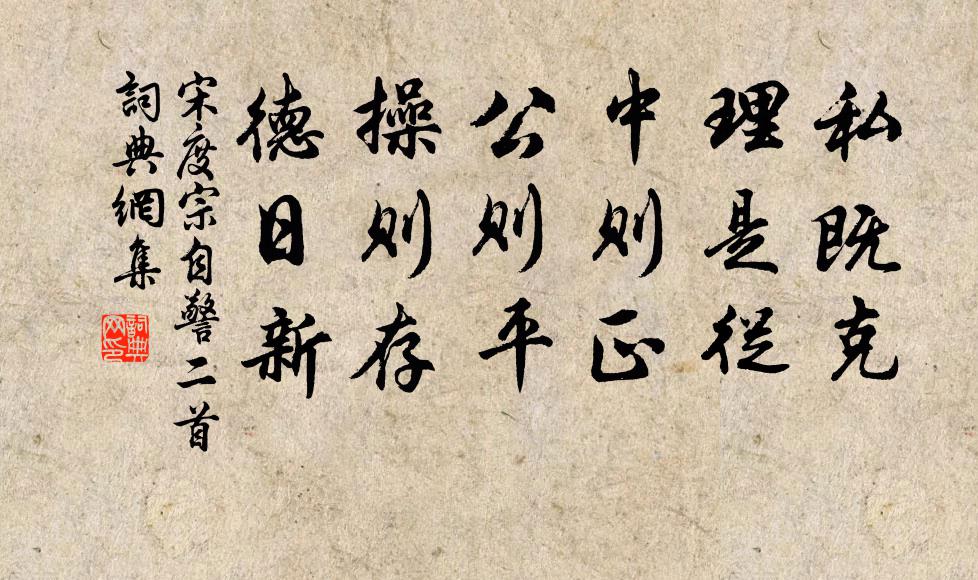 私既克
理是從
中則正
公則平
操則存
德日新
宋度宗自警二首
詞典網集
詞典
网印